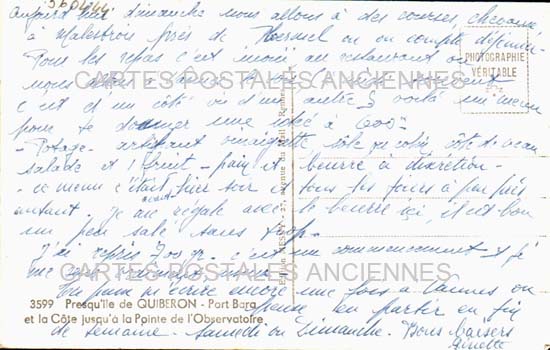 560444
Aujourd'hui dimanche nous allons à des courses, chevaux,
à Malestroit près de Ploermel ou on compte déjeuner
Pour les repas c'est moitié au restaurant ou
nous
c'est d'un côté ou d'un autre voilà un menu
pour te donner une idée à 600
- Potage - artichaut vinaigrette, côte de veau
salade et 1 fruit - pain et beurre à discrétion -
ce menu c'était hier soir et tous les jours à peu près
autant. Je me régale avec le beurre ici, il est bon
un peu salé sans trop -
J'ai repris 700 gr. c'est un commencement et je
me
Tu peux m'écrire encore une fois à Vannes on
pense en partir en fin
de semaine - Samedi ou Dimanche. Bons baisers
Ginette
PHOTOGRAPHIE
VÉRITABLE
CARTES POSTALES ANCIENNES
CARTES POSTALES ANCIENNES
3599 Presqu'île de QUIBERON - Port Bara
et la Côte jusqu'à la Pointe de l'Observatoire